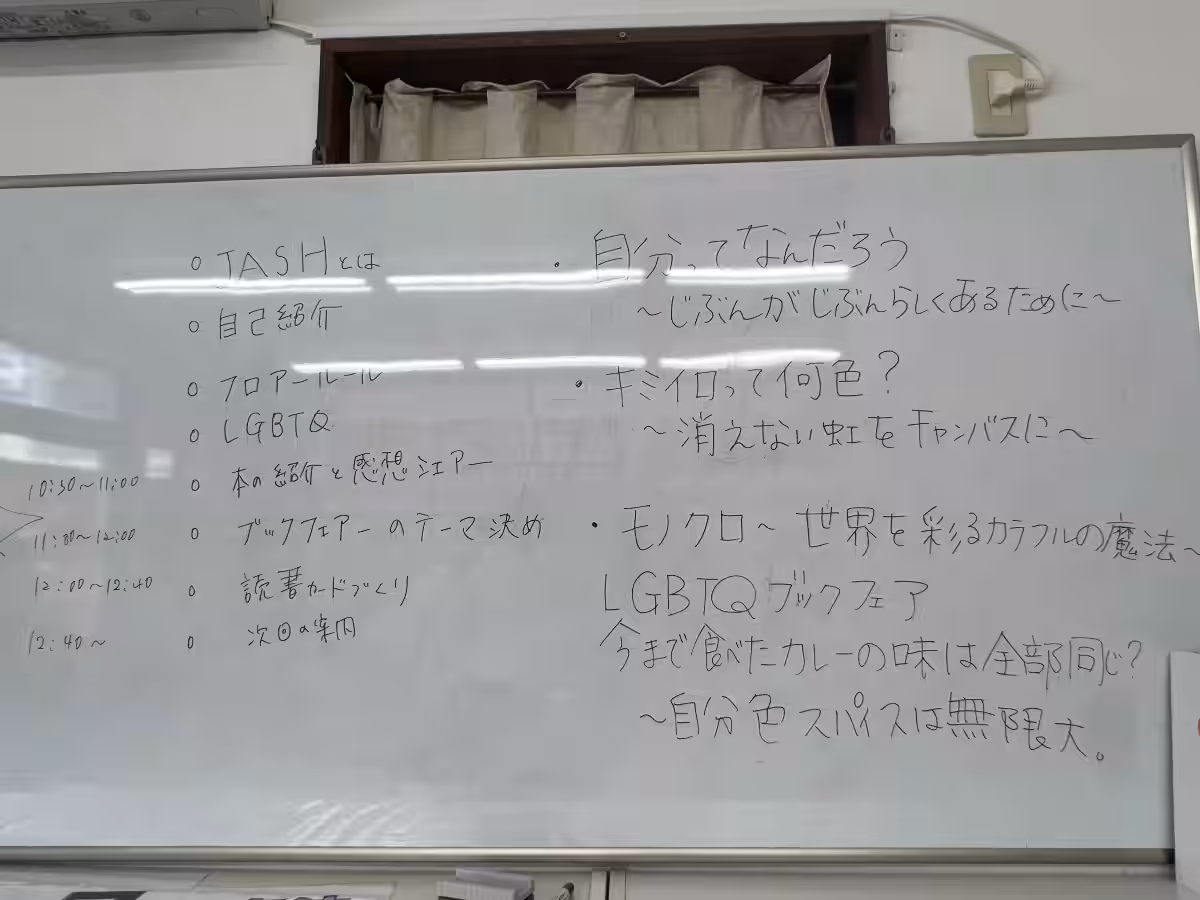 ○ JASHとは
○ 自己紹介
○ フロアールール
○ LGBTQ
10:30～11:00 ○ 本の紹介と感想シェアー
11:00～12:00 ○ ブックフェアーのテーマ決め
12:00～12:40 ○ 読書カードづくり
12:40～ ○ 次回の案内
・自分ってなんだろう
～じぶんがじぶんらしくあるために～
・キミイロって何色？
～消えない虹をキャンバスに～
・モノクロ～世界を彩るカラフルの魔法～
LGBTQブックフェア
今まで食べたカレーの味は全部同じ？
～自分色スパイスは無限大。